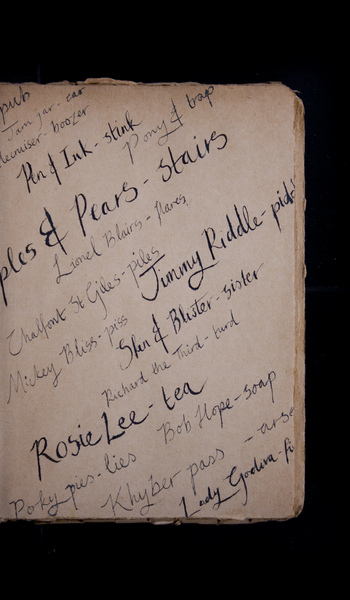 pub
Jam jar - car
cruiser - boozer
Pen & Ink - stink
Pony & trap
ples & Pears - stairs
Lionel Blairs - flares
Jimmy Riddle - pidd
Chalfont St Giles - piles
Mickey Bliss - piss
Skin & Blister - sister
Richard the Third - turd
Rosie Lee - tea
Bob Hope - soap
Porky pies - lies
Khyber pass - arse
Lady Godiva - fi